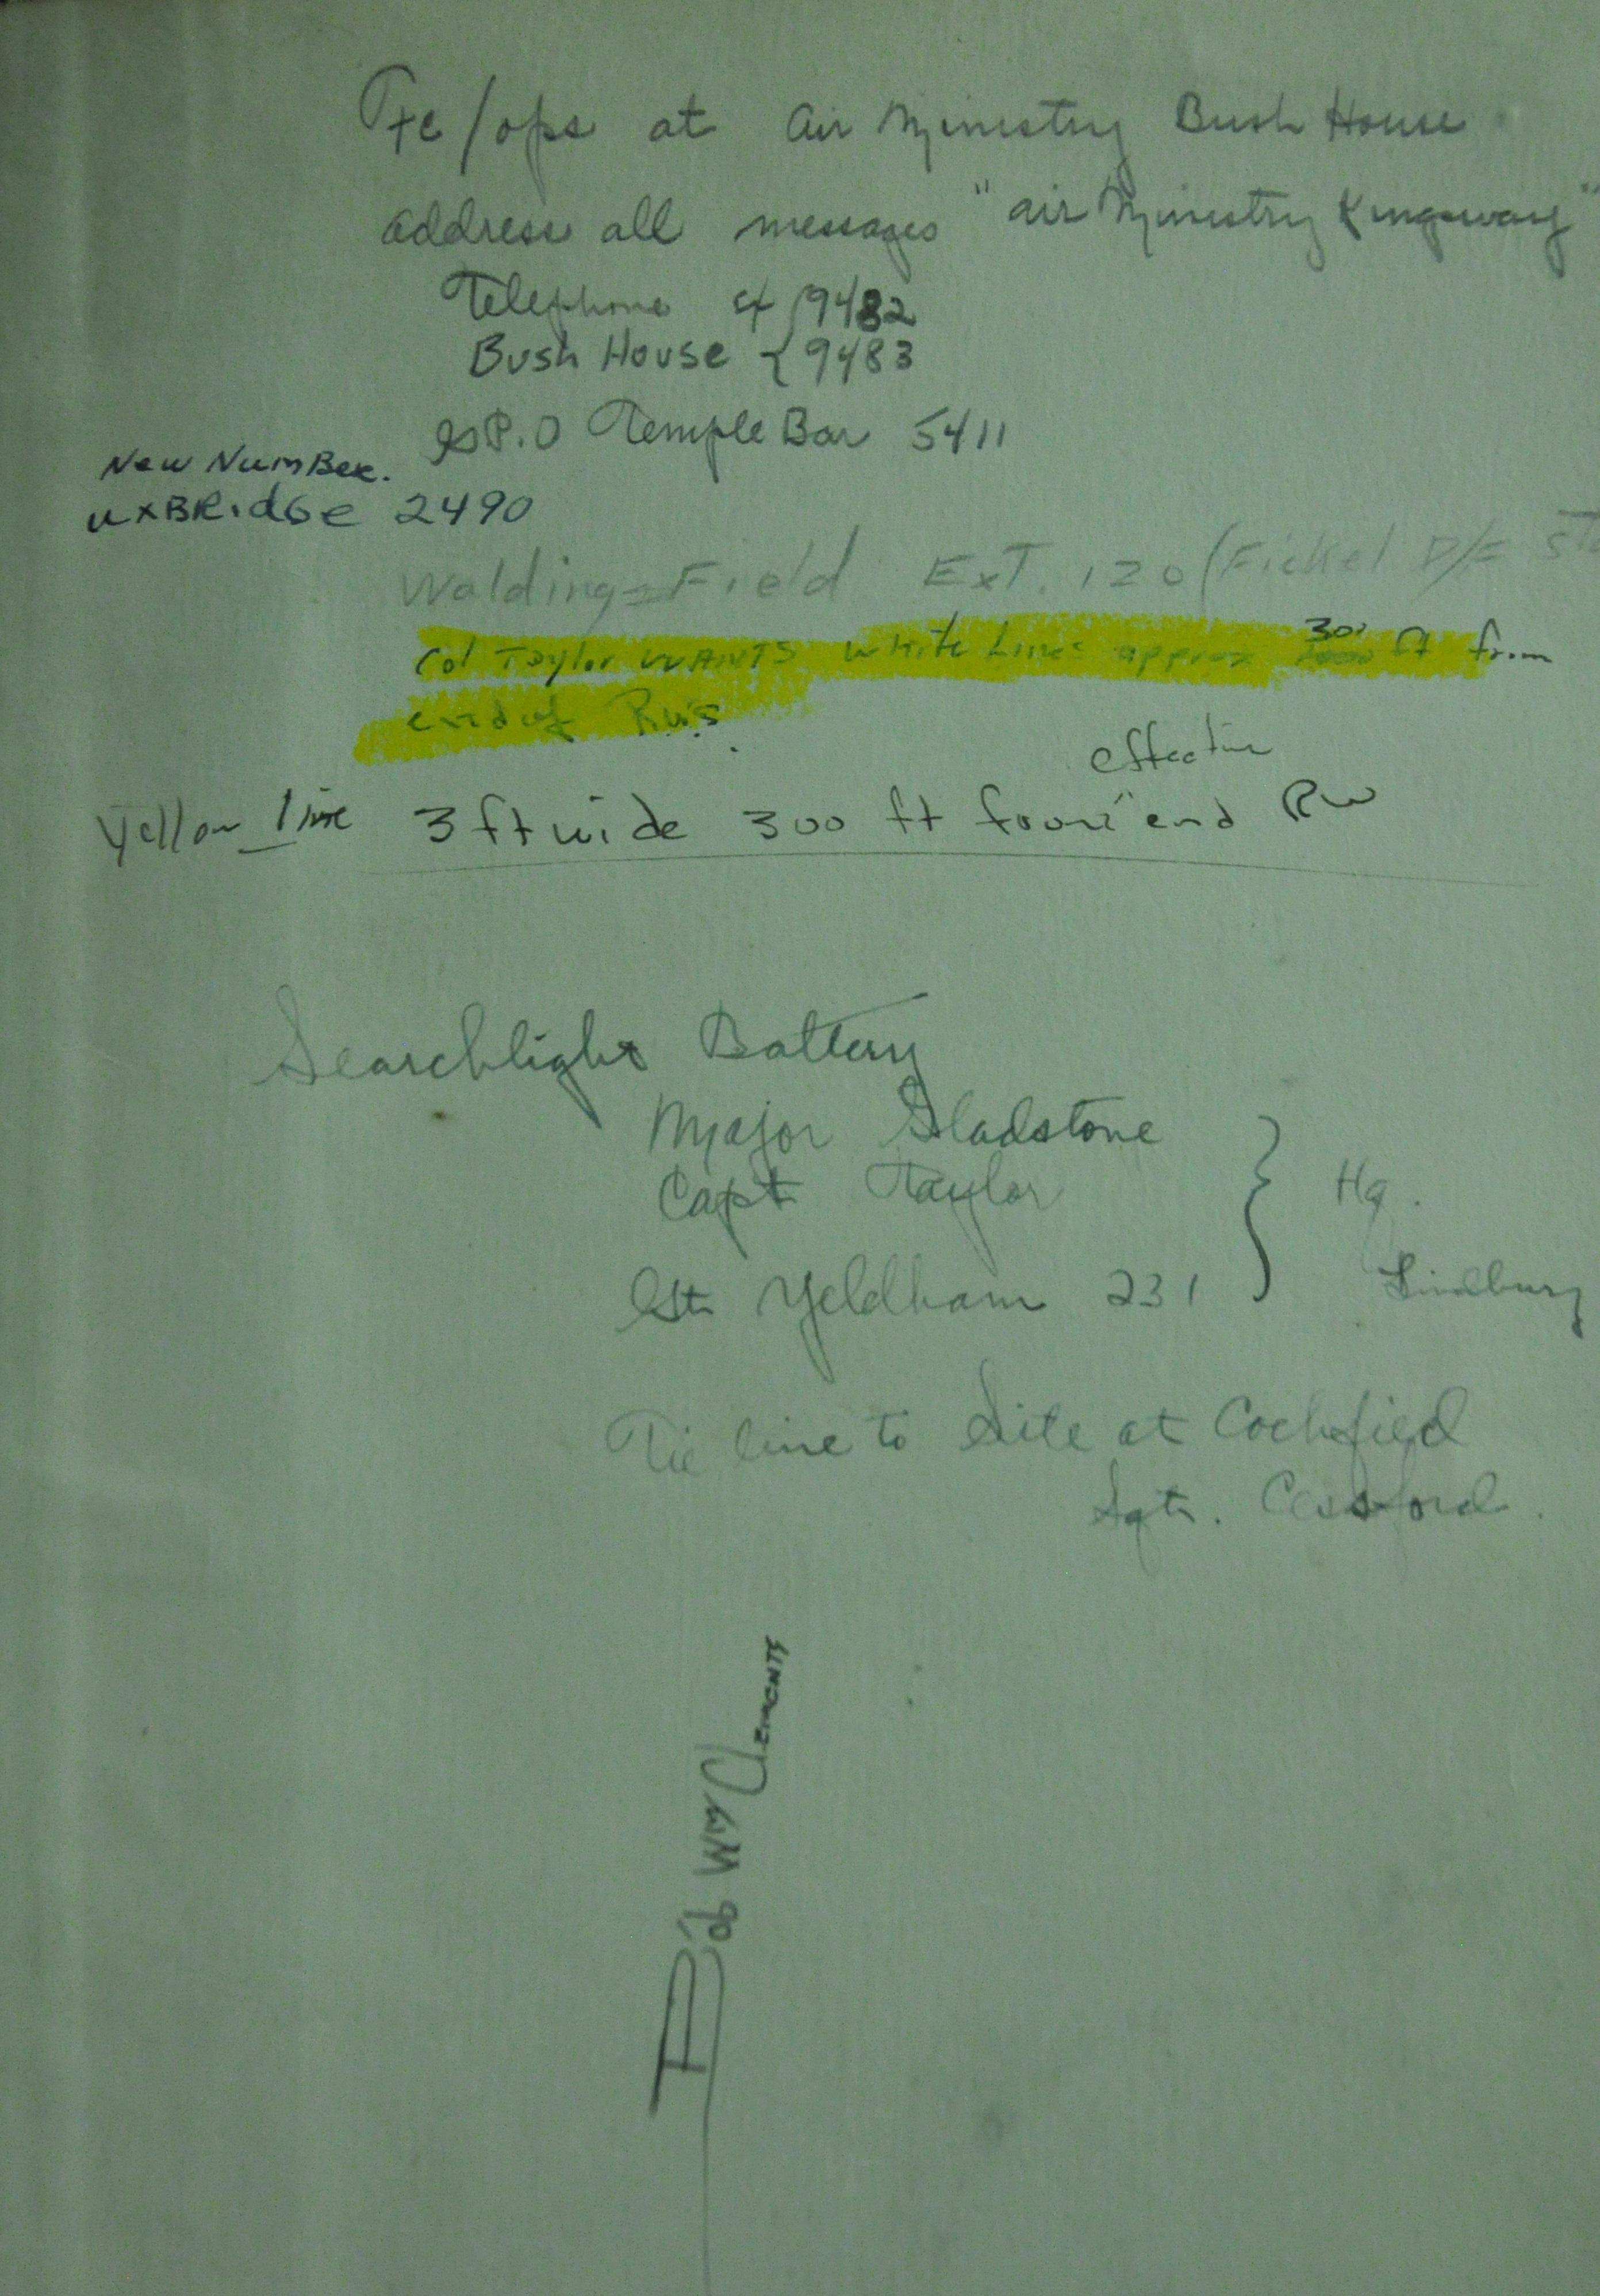 Fc/ops at Air Ministry Bush House
address all messages "Air Ministry Kingsway"
Telephone 9482
Bush House { 9483
G.P.O Temple Bar 5411
New NumBer.
uxBRidGe 2490
Walding=Field ExT. 120 (Fickel D/F Sta
Col Taylor WANTS white Lines approx 300 ft from
end of Rw's
effective
Yellow line 3 ft wide 300 ft from end RW
Searchlight Battery
Major Gladstone
Capt Taylor } Hq.
Gt Yeldham 231
Tie line to Site at Cockfied
Sgt. Cessford.
Bob Wm Clements